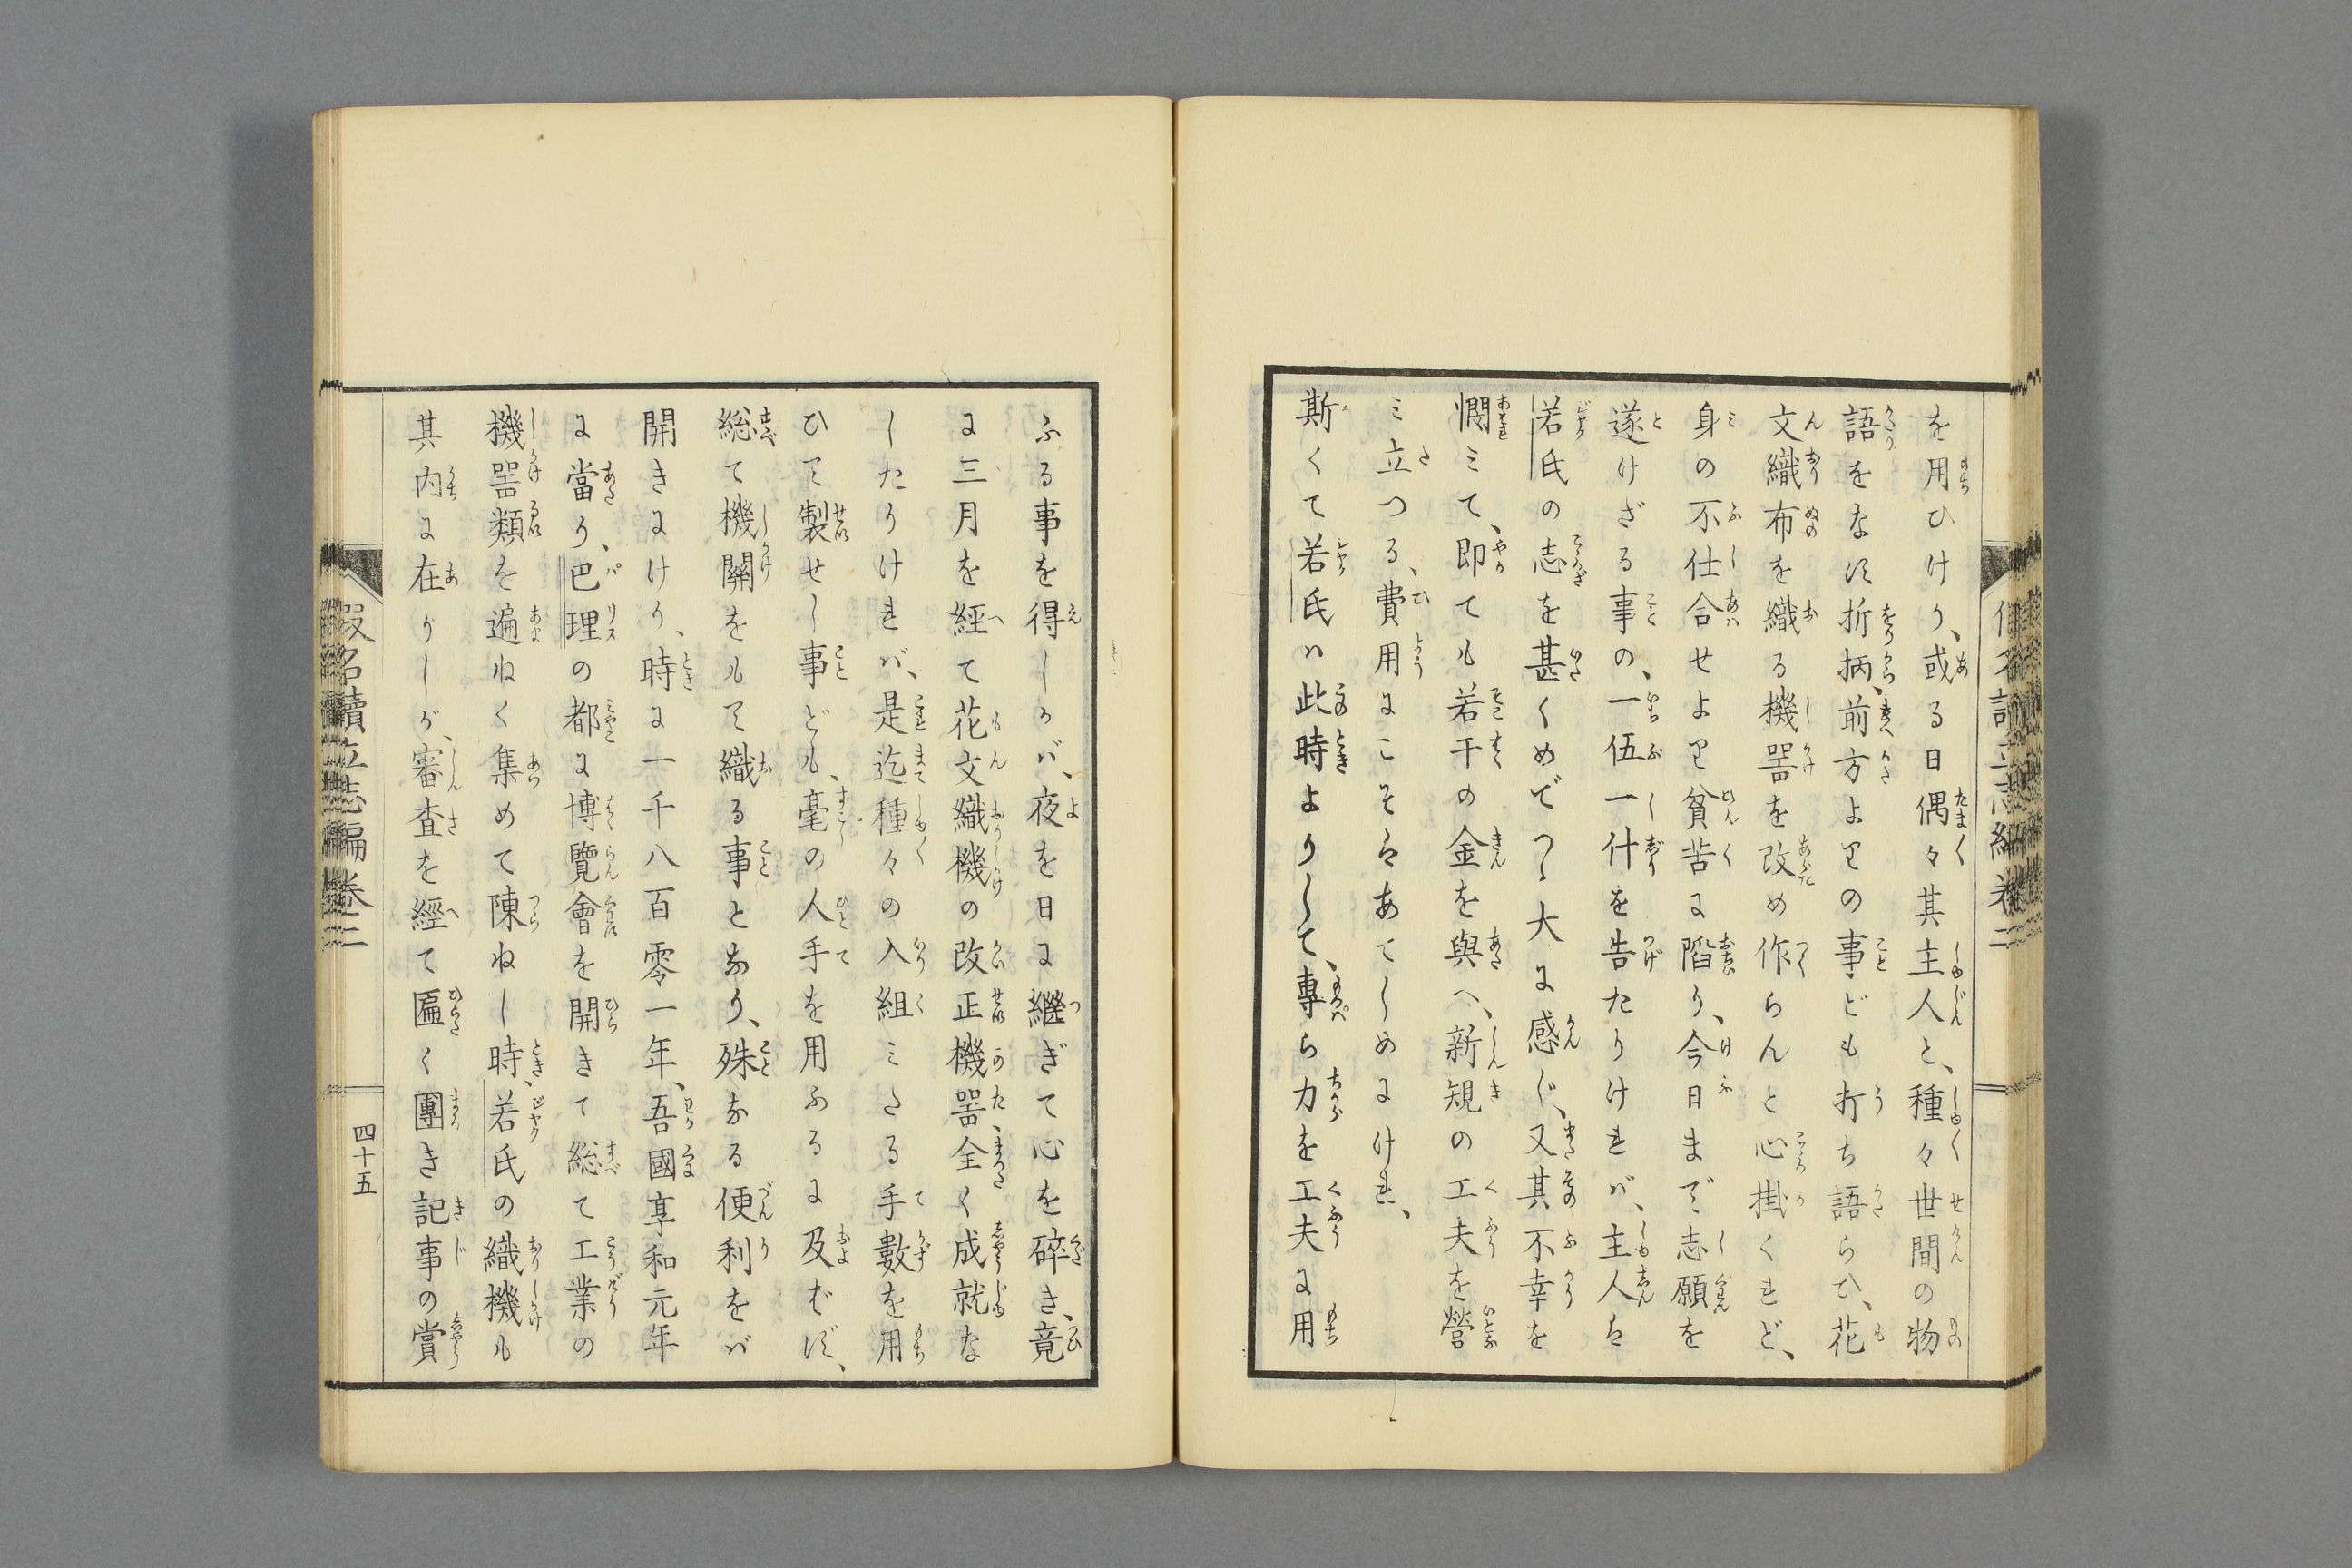 を用ひけり、或る日偶々其主人と、種々世間の物
語をなし折柄、前方よりの事ども打ち語らひ、花
文織布を織る機噐を改め作らんと心掛くれど、
身の不仕合せより貧苦に陷り、今日まで志願を
遂けざる事の、一伍一什を告たりけれバ、主人は
若氏の志を甚くめでつゝ大に感じ、又其不幸を
憫ミて、即ても若干の金を與へ、新規の工夫を營
ミ立つる、費用にこそはあてしめにけれ、
斯くて若氏ハ此時よりして、專ら力を工夫に用
假名讀立志編 卷二
ふる事を得しかバ、夜を日に繼ぎて心を碎き、竟
に三月を經て花文織機の改正機噐全く成就な
したりけれバ、是迄種々の入組ミたる手數を用
ひて製せし事ども、毫の人手を用ふるに及ばず、
総て機關をもて織る事となり、殊なる便利をバ
開きにけり、時に一千八百零一年、吾國享和元年
に當り、巴理の都に博覽會を開きて総て工業の
機噐類を遍ねく集めて陳ねし時、若氏の織機も
其内に在りしが、審査を經て匾く團き記事の賞
假名讀立志編 卷二
四十五